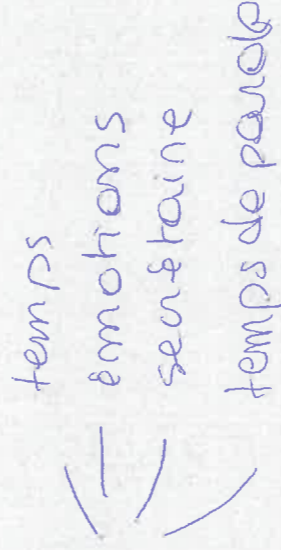 temps
émotions
secrétaire
temps de parole